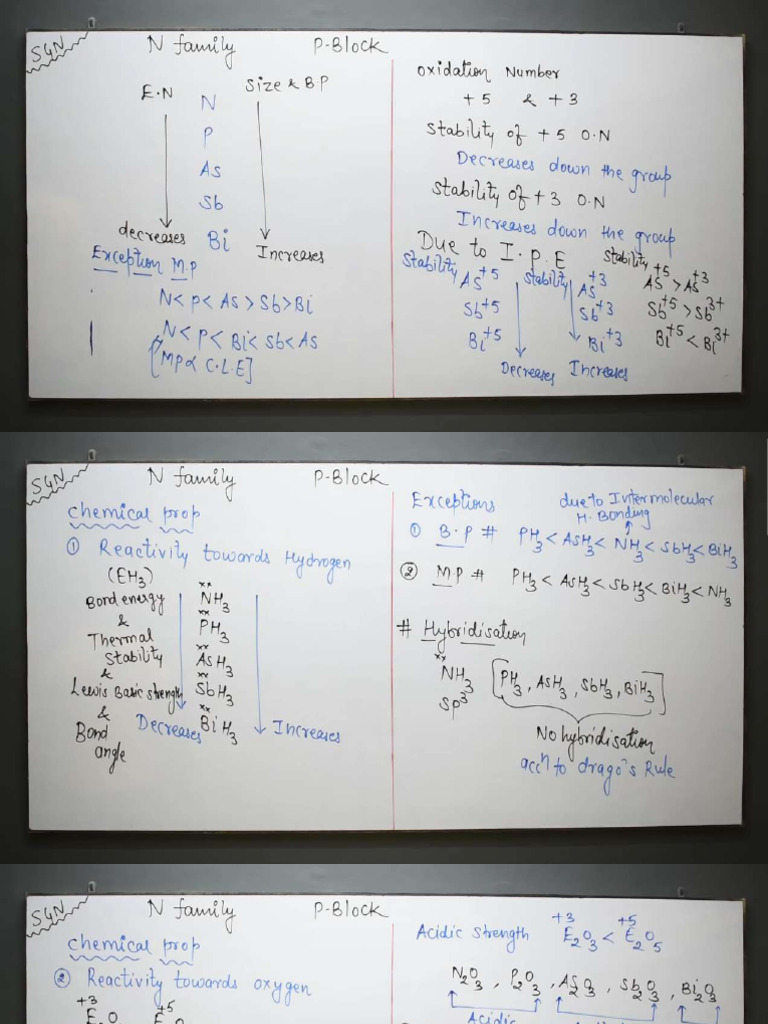 SGN
N family P-Block
E.N
Size & B.P
N
P
As
Sb
Bi
decreases
Increases
Exception M.P
N < P < As > Sb > Bi
N < P < Bi < Sb < As
[MP ∝ C.L.E]
Oxidation Number
+5 & +3
Stability of +5 O.N
Decreases down the group
Stability of +3 O.N
Increases down the group
Due to I.P.E
Stability As+5
Sb+5
Bi+5
Decreases
Stability As+3
Sb+3
Bi+3
Increases
Stability
As+5 > As+3
Sb+5 > Sb3+
Bi+5 < Bi3+
SGN
N family P-Block
chemical prop
① Reactivity towards Hydrogen
(EH3)
Bond energy
&
Thermal
Stability
&
Lewis Basic strength
&
Bond
angle
Decreases
NH3
PH3
AsH3
SbH3
BiH3
Increases
Exceptions
due to Intermolecular
H-Bonding
① B.P # PH3 < AsH3 < NH3 < SbH3 < BiH3
② M.P # PH3 < AsH3 < SbH3 < BiH3 < NH3
# Hybridisation
NH3 [PH3, AsH3, SbH3, BiH3]
sp3
No hybridisation
accn to drago's Rule
SGN
N family P-Block
chemical prop
② Reactivity towards oxygen
+3 +5
Acidic strength +3 E2O3 < +5 E2O5
N2O3, P2O3, As2O3, Sb2O3, Bi2O3
Acidic